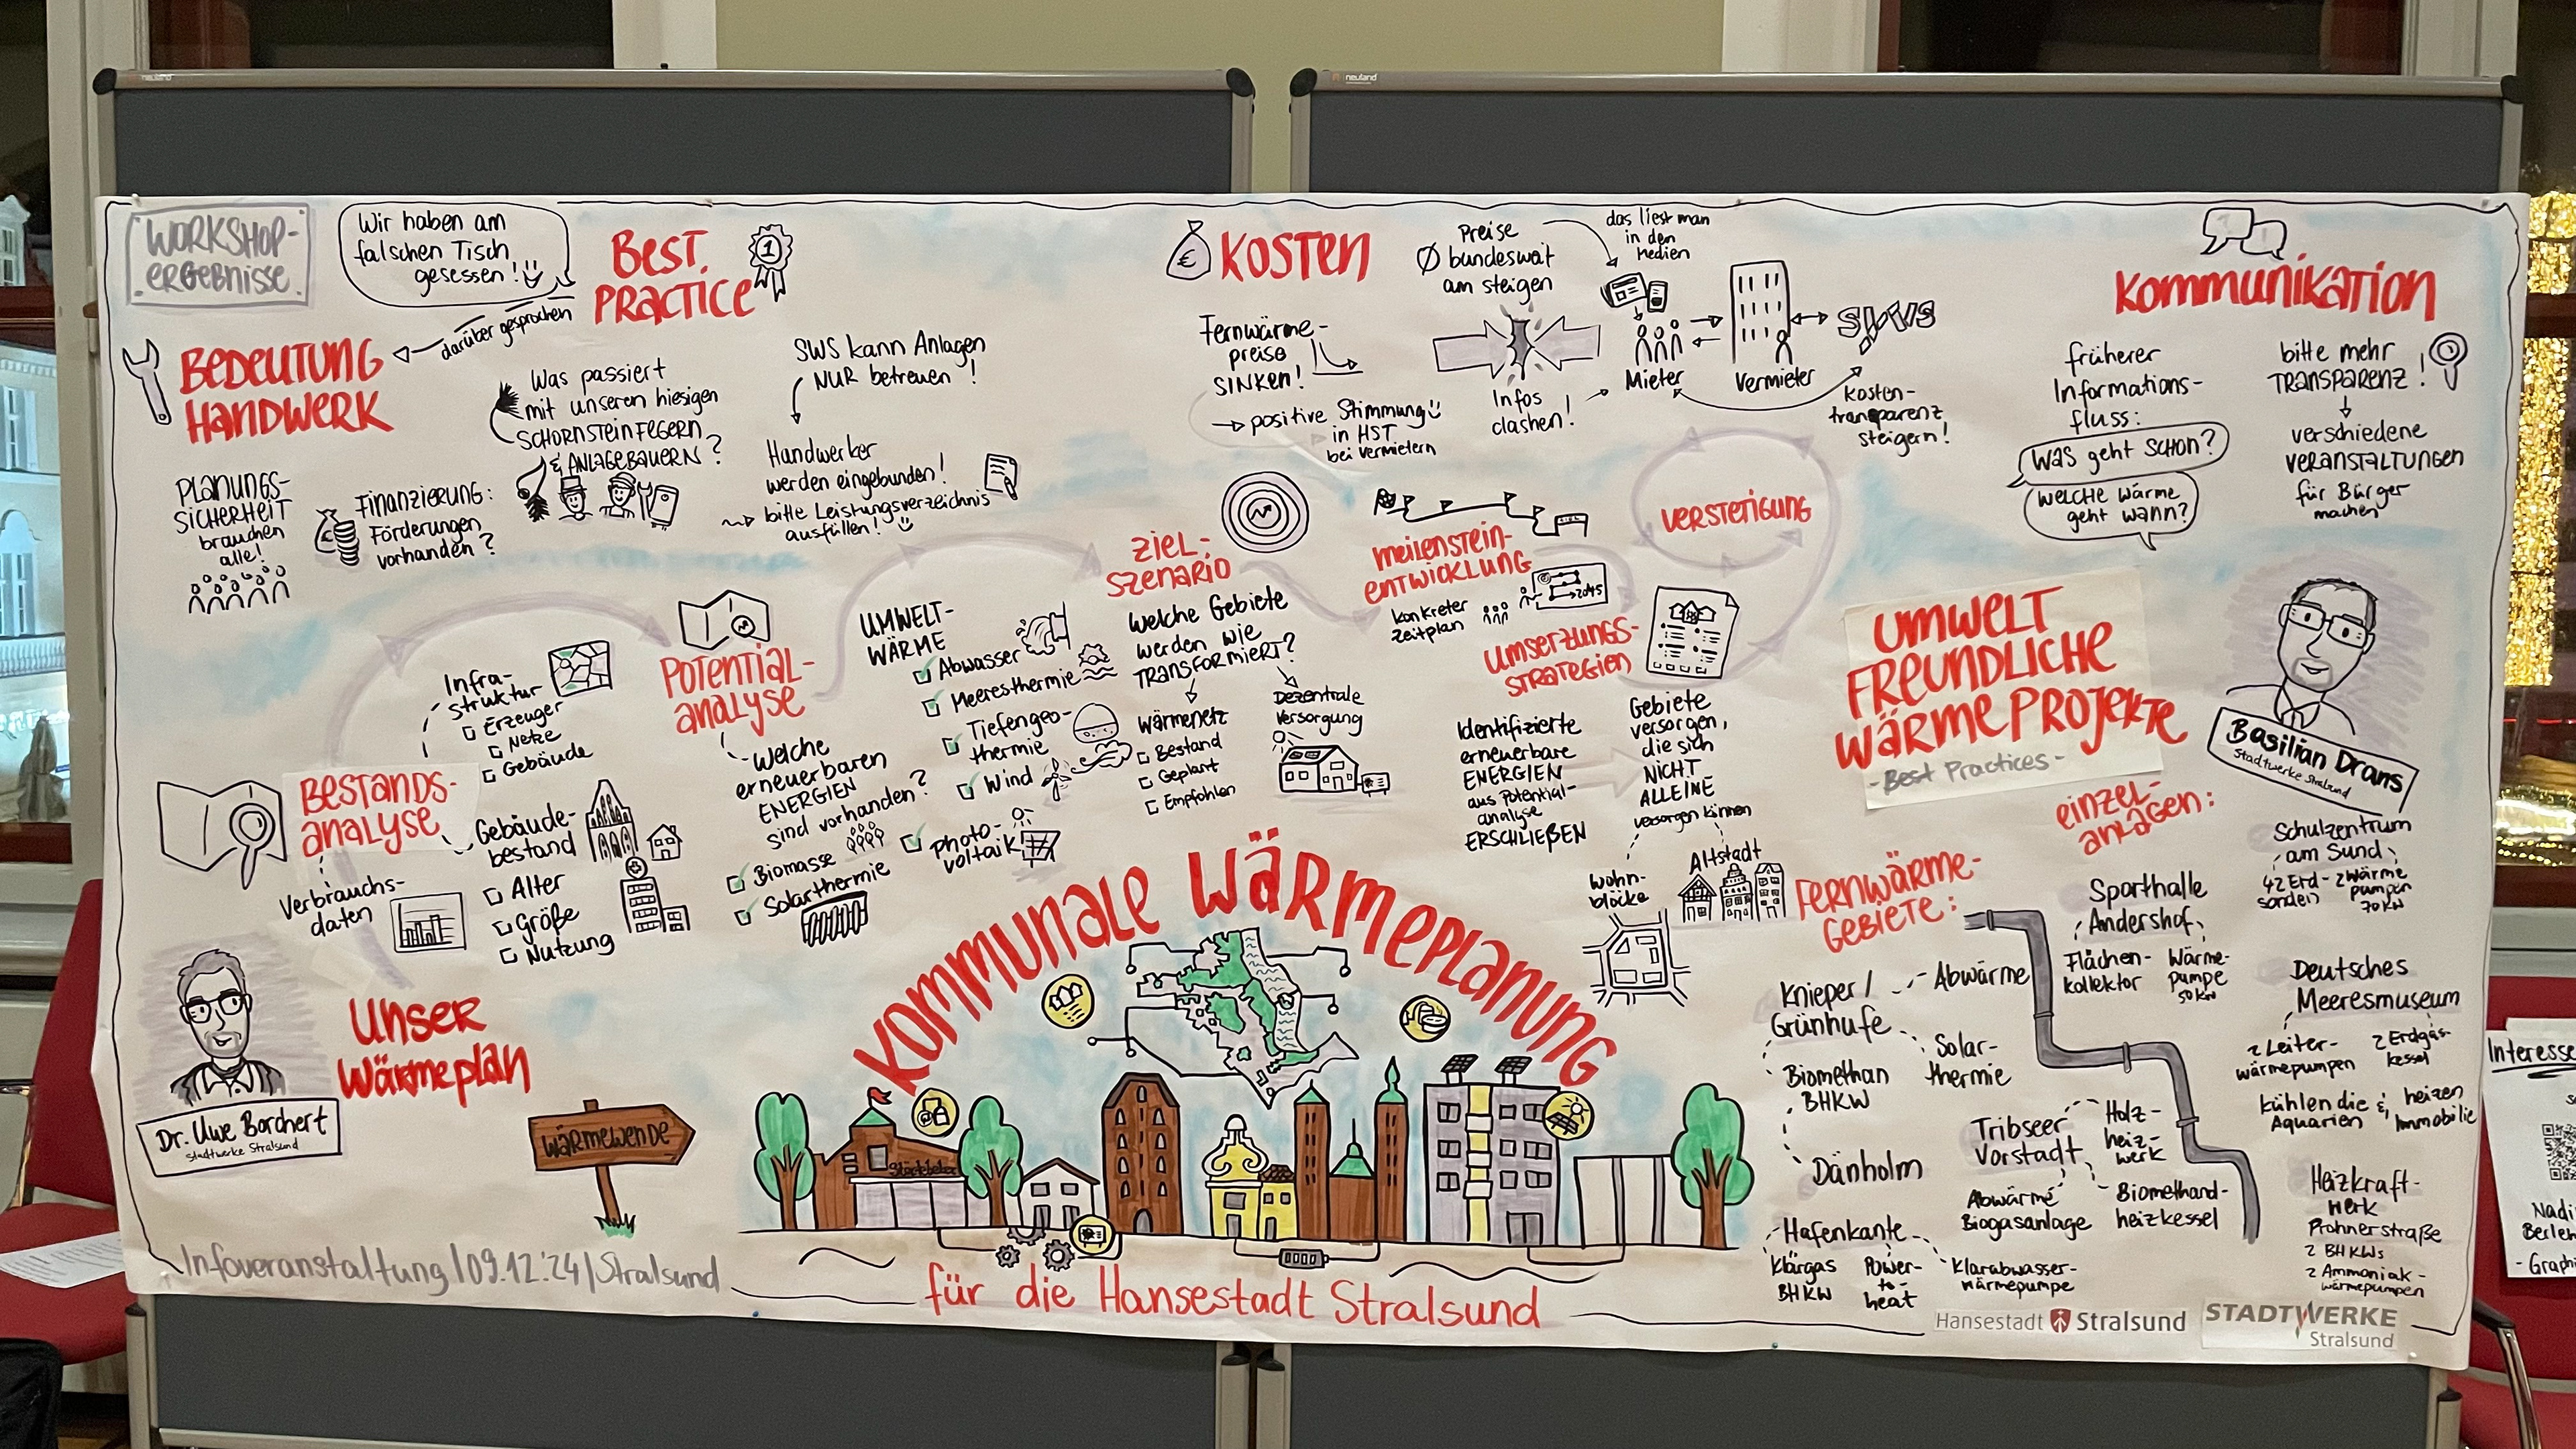 neuland
neuland
WORKSHOP-
ERGEBNISSE
Wir haben am
falschen Tisch
gesessen!
BEST
PRACTICE
1
darüber gesprochen
BEDEUTUNG
HANDWERK
PLANUNGS-
SICHERHEIT
brauchen
alle!
FINANZIERUNG:
Förderungen
vorhanden?
Was passiert
mit unseren hiesigen
SCHORNSTEINFEGERN
& ANLAGEBAUERN?
SWS kann Anlagen
NUR betreuen!
Handwerker
werden eingebunden!
bitte Leistungsverzeichnis
ausfüllen!
€ KOSTEN
Fernwärme-
preise
SINKEN!
→ positive Stimmung
in HST
bei Vermietern
Preise
Ø bundesweit
am steigen
Infos
clashen!
das liest man
in den
Medien
Mieter
Vermieter
SWS
Kosten-
transparenz
steigern!
KOMMUNIKATION
früherer
Informations-
fluss:
Was geht SCHON?
WELCHE Wärme
geht wann?
bitte mehr
TRANSPARENZ!
verschiedene
VERANSTALTUNGEN
für Bürger
machen
BESTANDS-
analyse
Infra-
struktur
Erzeuger
Netze
Gebäude
Gebäude-
bestand
Alter
Größe
Nutzung
Verbrauchs-
daten
POTENTIAL-
analyse
Welche
erneuerbaren
ENERGIEN
sind vorhanden?
Biomasse
Solarthermie
UMWELT-
WÄRME
Abwasser
Meeresthermie
Tiefengeo-
thermie
Wind
Photo-
voltaik
ZIEL-
SZENARIO
Welche Gebiete
werden wie
TRANSFORMIERT?
Wärmenetz
Bestand
Geplant
Empfohlen
Dezentrale
Versorgung
MEILENSTEIN-
ENTWICKLUNG
ZIEL
konkreter
Zeitplan
2045
UMSETZUNGS-
STRATEGIEN
Identifizierte
erneuerbare
ENERGIEN
aus Potential-
analyse
ERSCHLIEẞEN
Gebiete
versorgen,
die sich
NICHT
ALLEINE
versorgen können
Wohn-
blöcke
Altstadt
VERSTETIGUNG
UMWELT
FREUNDLICHE
WÄRMEPROJEKTE
- Best Practices -
Basilian Drans
Stadtwerke Stralsund
FERNWÄRME-
GEBIETE:
Knieper/
Grünhufe
Abwärme
Solar-
thermie
Biomethan
BHKW
Dänholm
Tribseer
Vorstadt
Holz-
heiz-
werk
Abwärme
Biogasanlage
Biomethand-
heizkessel
Hafenkante
Klärgas
BHKW
Power-
to-
heat
Klarabwasser-
wärmepumpe
EINZEL-
ANLAGEN:
Schulzentrum
am Sund
42 Erd-
sonden
2 Wärme
pumpen
70 KW
Sporthalle
Andershof
Flächen-
kollektor
Wärme-
pumpe
50 KW
Deutsches
Meeresmuseum
2 Leiter-
wärmepumpen
2 Erdgas-
kessel
kühlen die
Aquarien
& heizen
Immobilie
Heizkraft-
werk
Prohnerstraße
2 BHKWs
2 Ammoniak-
wärmepumpen
Dr. Uwe Borchert
Stadtwerke Stralsund
UNSER
Wärmeplan
WÄRMEWENDE
KOMMUNALE WÄRMEPLANUNG
Störtebeker
für die Hansestadt Stralsund
Infoveranstaltung | 09.12.'24 | Stralsund
Hansestadt Stralsund
STADTWERKE
Stralsund
Interesse
Nadi
Berlen
- Graphi